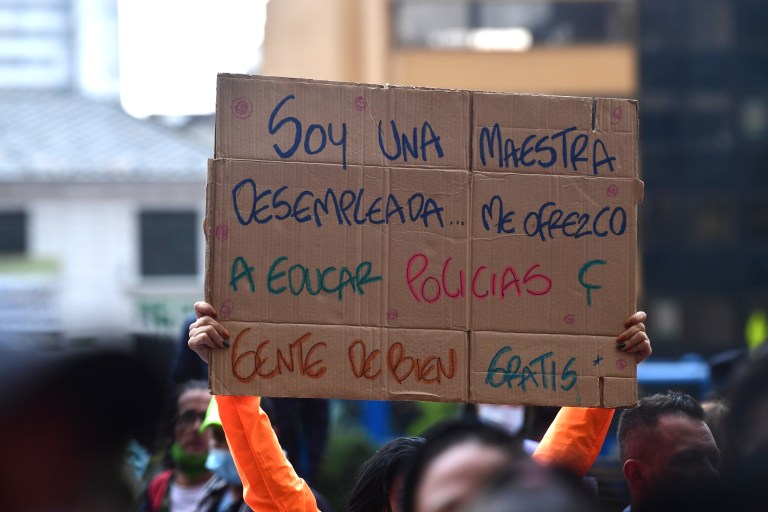 SOY UNA MAESTRA
DESEMPLEADA... ME OFREZCO
A EDUCAR POLICIAS Ç
GENTE DE BIEN GRATIS *